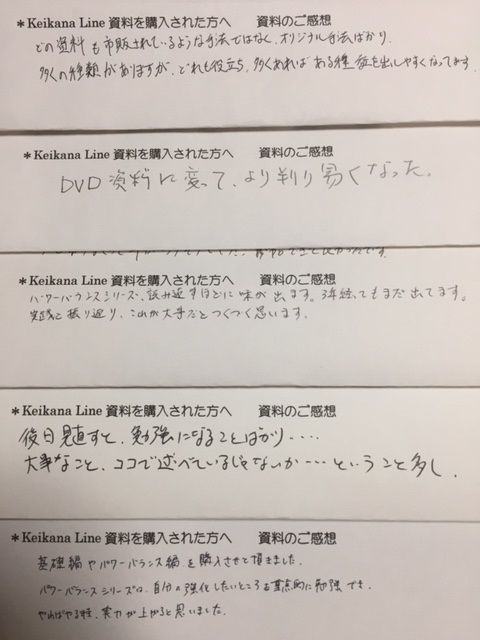 ＊Keikana Line 資料を購入された方へ　資料のご感想
どの資料も市販されているような手法ではなく、オリジナル手法ばかり。
多くの種類がありますが、どれも役立ち、多くあれば ある種 技を出しやすくなってます
＊Keikana Line 資料を購入された方へ　資料のご感想
DVD資料に変って、より判り易くなった。
＊Keikana Line 資料を購入された方へ　資料のご感想
パワーバランスシリーズ、読み返すほどに味が出ます。3年経ってもまだ出てます。
実践と振り返り、これが大事だとつくづく思います。
＊Keikana Line 資料を購入された方へ　資料のご感想
後日見直すと、勉強になることばかり・・・・
大事なこと、ココで述べているじゃないか・・・ということ多し。
＊Keikana Line 資料を購入された方へ　資料のご感想
基礎編やパワーバランス編を購入させて頂きました。
パワーバランスシリーズは、自分の強化したいところを重点的に勉強でき、
やればやる程、実力が上がると思いました。